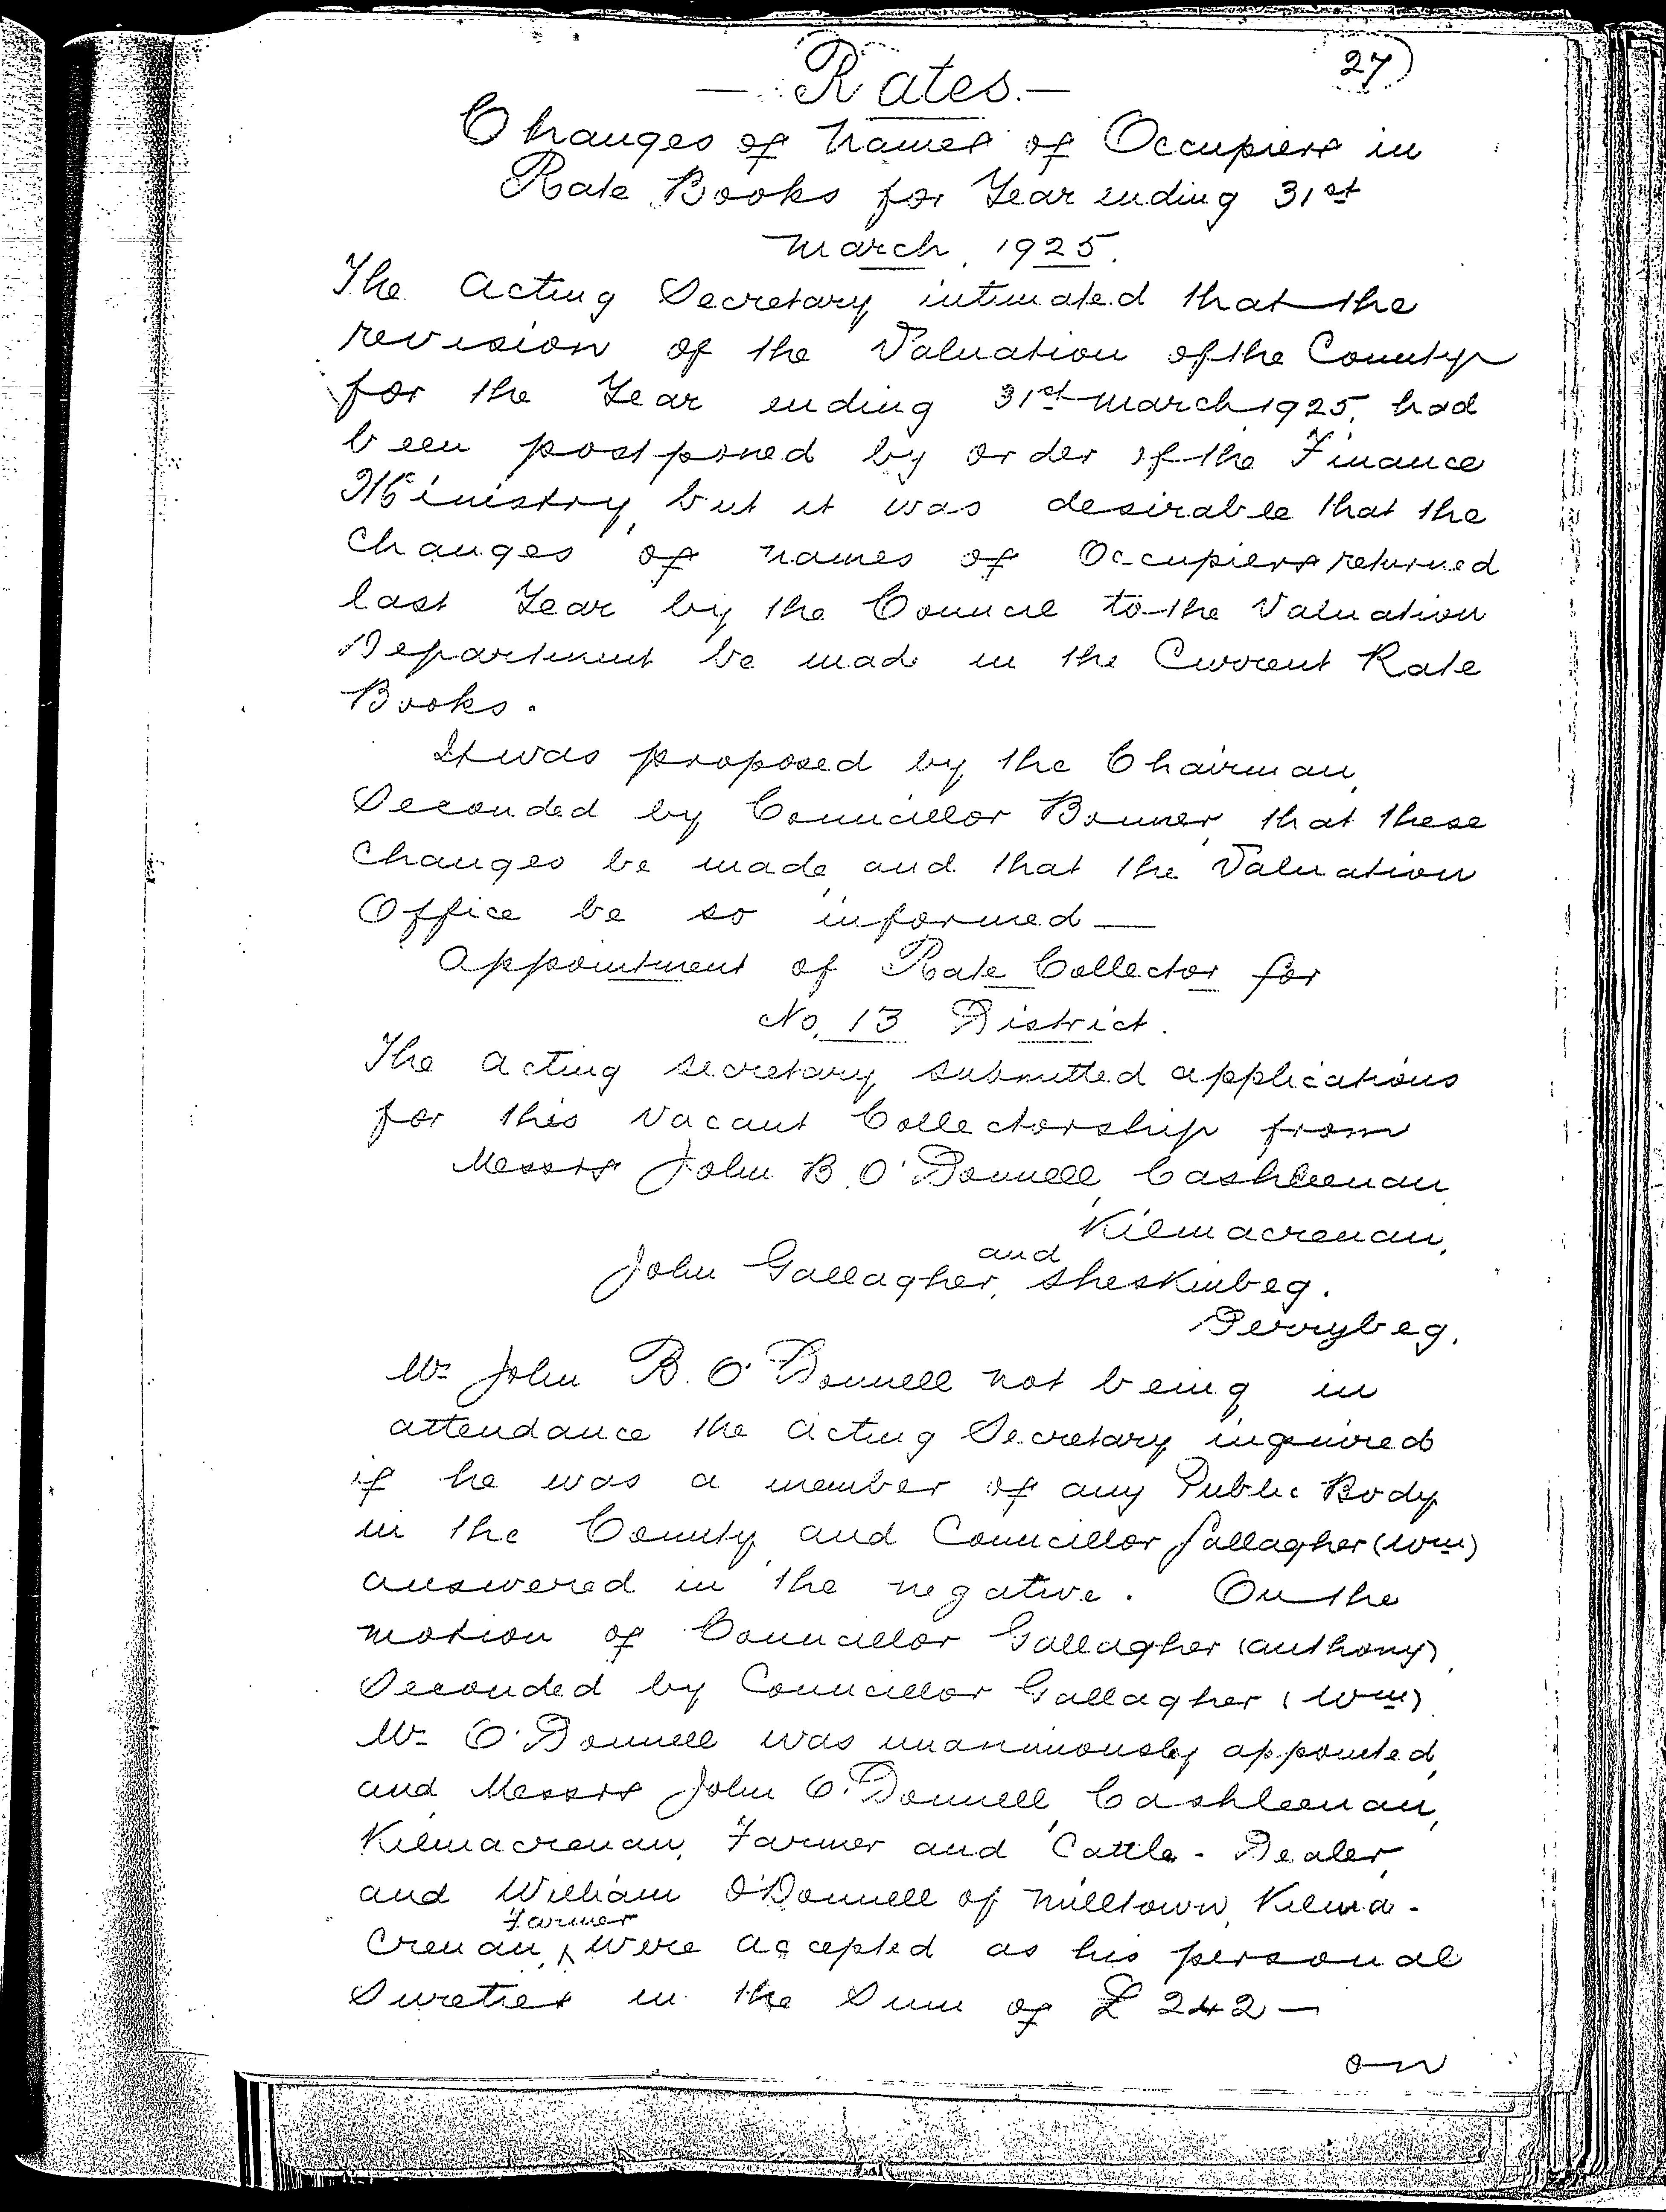 27
— Rates. —
Changes of names of Occupiers in
Rate Books for Year ending 31st
March, 1925.
The Acting Secretary intimated that the
revision of the Valuation of the County
for the Year ending 31st March 1925, had
been postponed by order of the Finance
Ministry, but it was desirable that the
Changes of names of Occupiers returned
last Year by the Council to the Valuation
Department be made in the Current Rate
Books.
It was proposed by the Chairman,
Seconded by Councillor Bonner, that these
Changes be made, and that the Valuation
Office be so informed —
Appointment of Rate Collector for
No. 13 District.
The Acting Secretary submitted applications
for this Vacant Collectorship from
Messrs John B. O'Donnell, Cashleenan,
Kilmacrenan,
and
John Gallagher, Sheskinbeg.
Derrybeg.
Mr John B. O'Donnell not being in
attendance the Acting Secretary inquired
if he was a member of any Public Body
in the County, and Councillor Gallagher (Wm)
answered in the negative. On the
motion of Councillor Gallagher (Anthony),
Seconded by Councillor Gallagher (Wm)
Mr O'Donnell was unanimously appointed,
and Messrs John O'Donnell, Cashleenan,
Kilmacrenan, Farmer and Cattle-Dealer,
and William O'Donnell of Milltown, Kilma-
Farmer
crenan, were accepted as his personal
Sureties in the Sum of £242 —
on